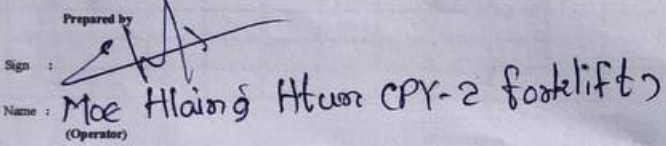 Prepared by
Sign :
Name : Moe Hlaing Htun (PY-2 forklift)
(Operator)